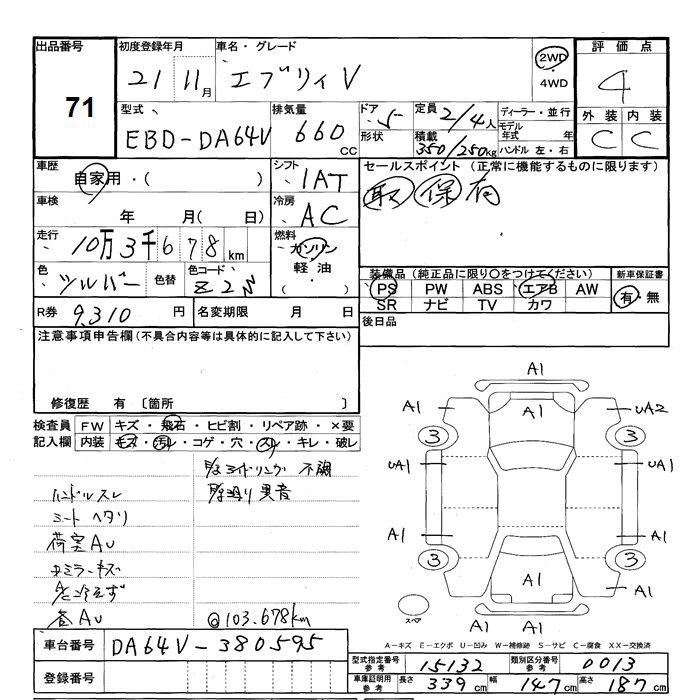 出品番号 初度登録年月 車名・グレード 2WD 評価点
71 21 11月 エブリィV 4WD 4
型式 排気量 ドア 定員 ディーラー・並行 外装 内装
EBD-DA64V 660cc 5 2/4人 モデル年式 年 C C
形状 積載 350/250kg ハンドル 左・右
車歴 自家用・( ) シフト IAT セールスポイント (正常に機能するものに限ります)
車検 年 月( 日) 冷房 AC 取 保 有
走行 10万3千678km 燃料 ガソリン
軽油・( )
色 シルバー 色替 色コード Z2S 装備品 (純正品に限り○をつけてください) 新車保証書
PS PW ABS エアB AW 有・無
SR ナビ TV カワ
R券 9,310円 名変期限 月 日 後日品
注意事項申告欄 (不具合内容等は具体的に記入して下さい)
修復歴 有 〔箇所
検査員 FW キズ・飛石・ヒビ割・リペア跡・×要
記入欄 内装 キズ・汚レ・コゲ・穴・スレ・キレ・破レ
アイドリング 不調
ハンドルスレ 異音
シート ヘタリ
荷室AU
キズ
AU @103.678km
A1
A1 A1 UA2
3 3
UA1 UA1
A1 A1
3 3
A1 A1 A1
スペア A1 A1
A-キズ E-エクボ U-凹み W-補修跡 S-サビ C-腐食 XX-交換済
車台番号 DA64V-380595
型式指定番号 参考 15132 類別区分番号 参考 0013
登録番号 車庫証明用 参考 長さ 339cm 幅 147cm 高さ 187cm